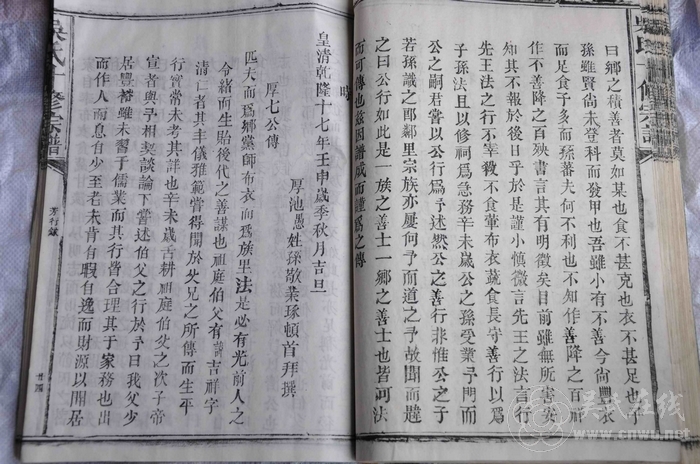 吳氏十修宗譜
曰鄉之積善者莫如某也食不甚克也衣不甚足也子
孫雖賢尚未登科而發甲也吾雖小有不善今尚豐衣
而足食子多而孫蕃夫何不利也不知作善降之百祥
作不善降之百殃書言其有明徵矣目前雖無所害安
知其不報於後日乎於是謹小慎微言先王之法言行
先王法之行不宰殺不食葷布衣蔬食長守善行以爲
子孫法且以修祠爲急務辛未歲公之孫受業予門而
公之嗣君嘗以公行爲予述歎公之善行非惟公之子
若孫識之卽鄰里宗族亦屢向予而道之予故聞而贈
之曰公行如此是一族之善士一鄉之善士也皆可法
而可傳也茲因譜成而謹爲之傳
時
皇清乾隆十七年壬申歲季秋月吉旦
厚池愚姪孫敬業琢頓首拜撰
厚七公傳
匹夫而爲鄉黨師布衣而爲族里法是必有光前人之
令緒而生貽後代之善謀也祖庭伯父有諱吉祥字
清仁者其丰儀雅範嘗得聞於父兄之所傳而生平
行實常未考其詳也辛未歲舌耕祖庭伯父之次子帝
宣者與予相契談論下嘗述伯父之行於予曰我父少
居豐裕雖未習于儒業而其行皆合理其于家務也出
而作人而息自少至老未嘗有暇自逸而財源以開居
吳氏十修宗譜
芳行錄
廿四
吳氏在线
www.cnwu.net